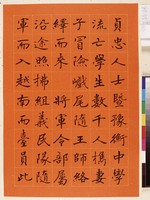 貞忠人士暨豫衡中學
流亡學生數千人攜妻
子冒險巇尾隨王師絡
繹而來 將軍令部屬
沿途照拂組義民隊隨
軍而入越南而臺員此